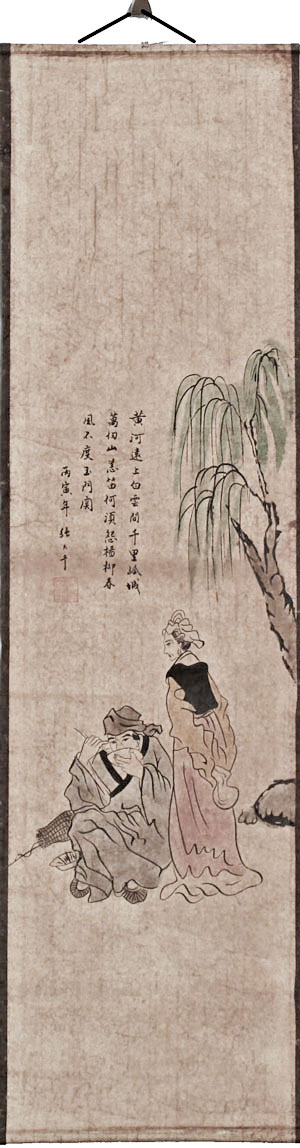 黄河遠上白雲間千里孤城
萬仞山羌笛何須怨楊柳春
風不度玉門関
丙寅年 張大千